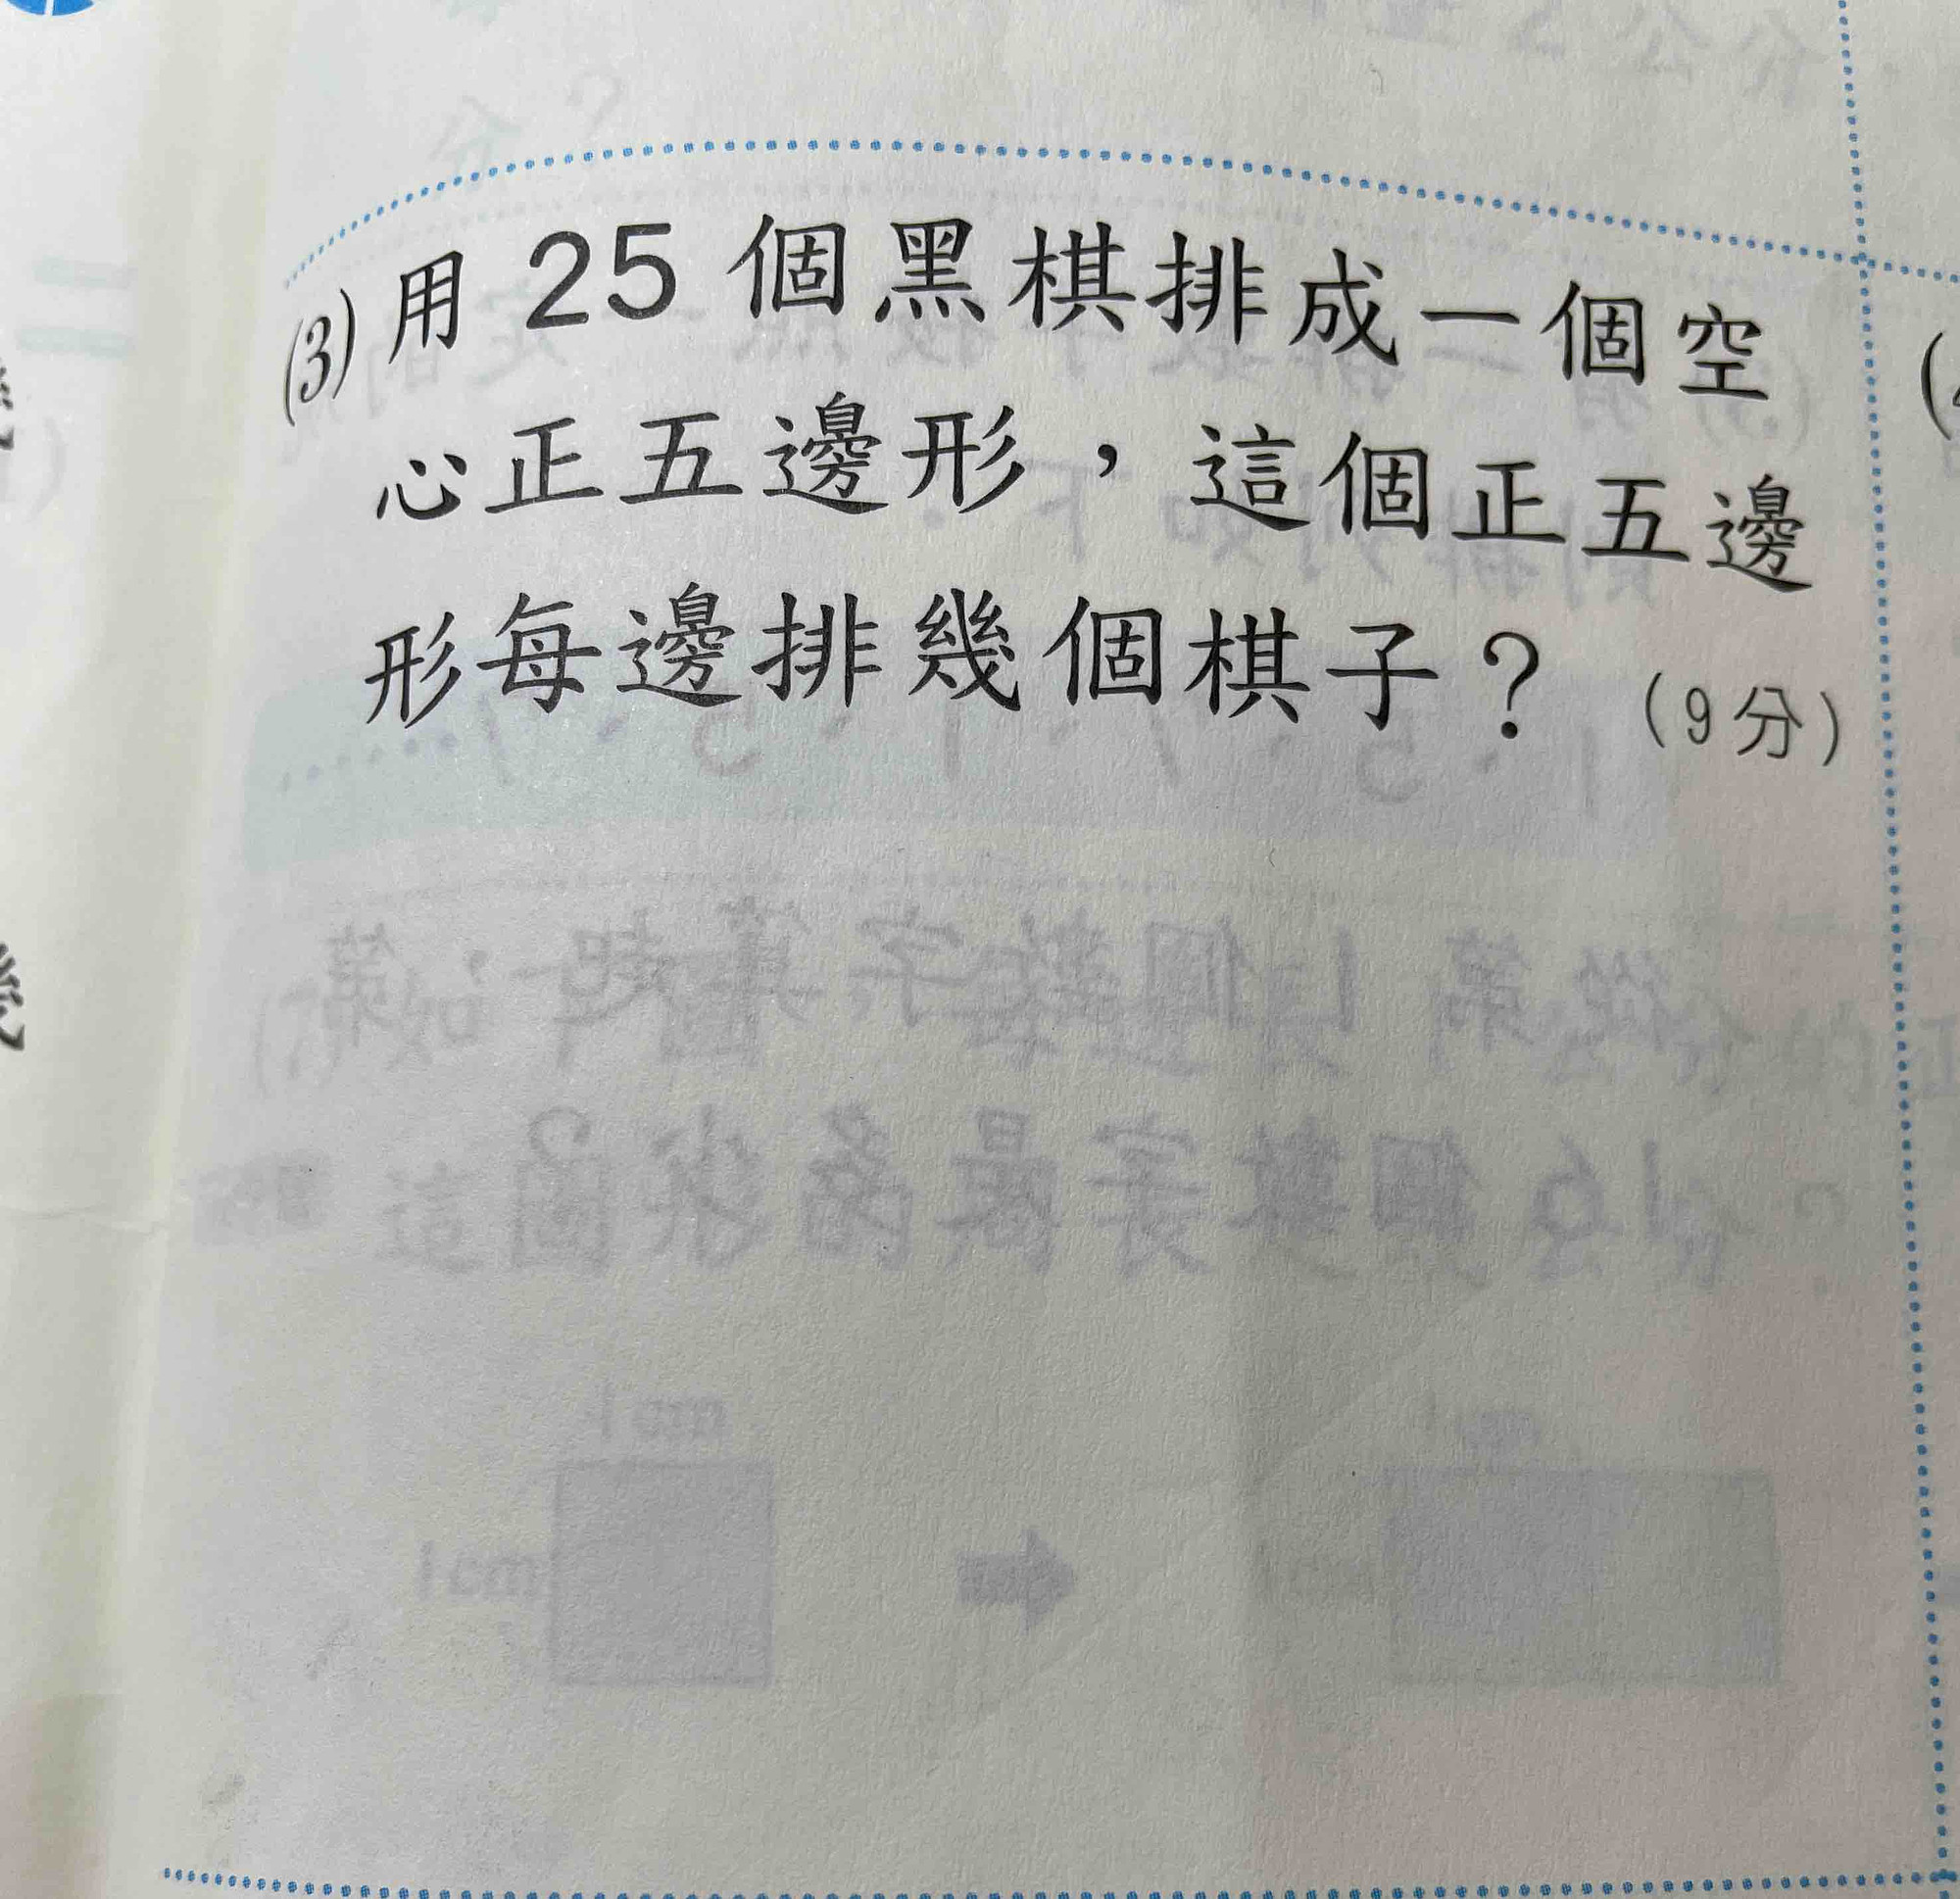 (3)用 25 個黑棋排成一個空
心正五邊形，這個正五邊
形每邊排幾個棋子？（9分）